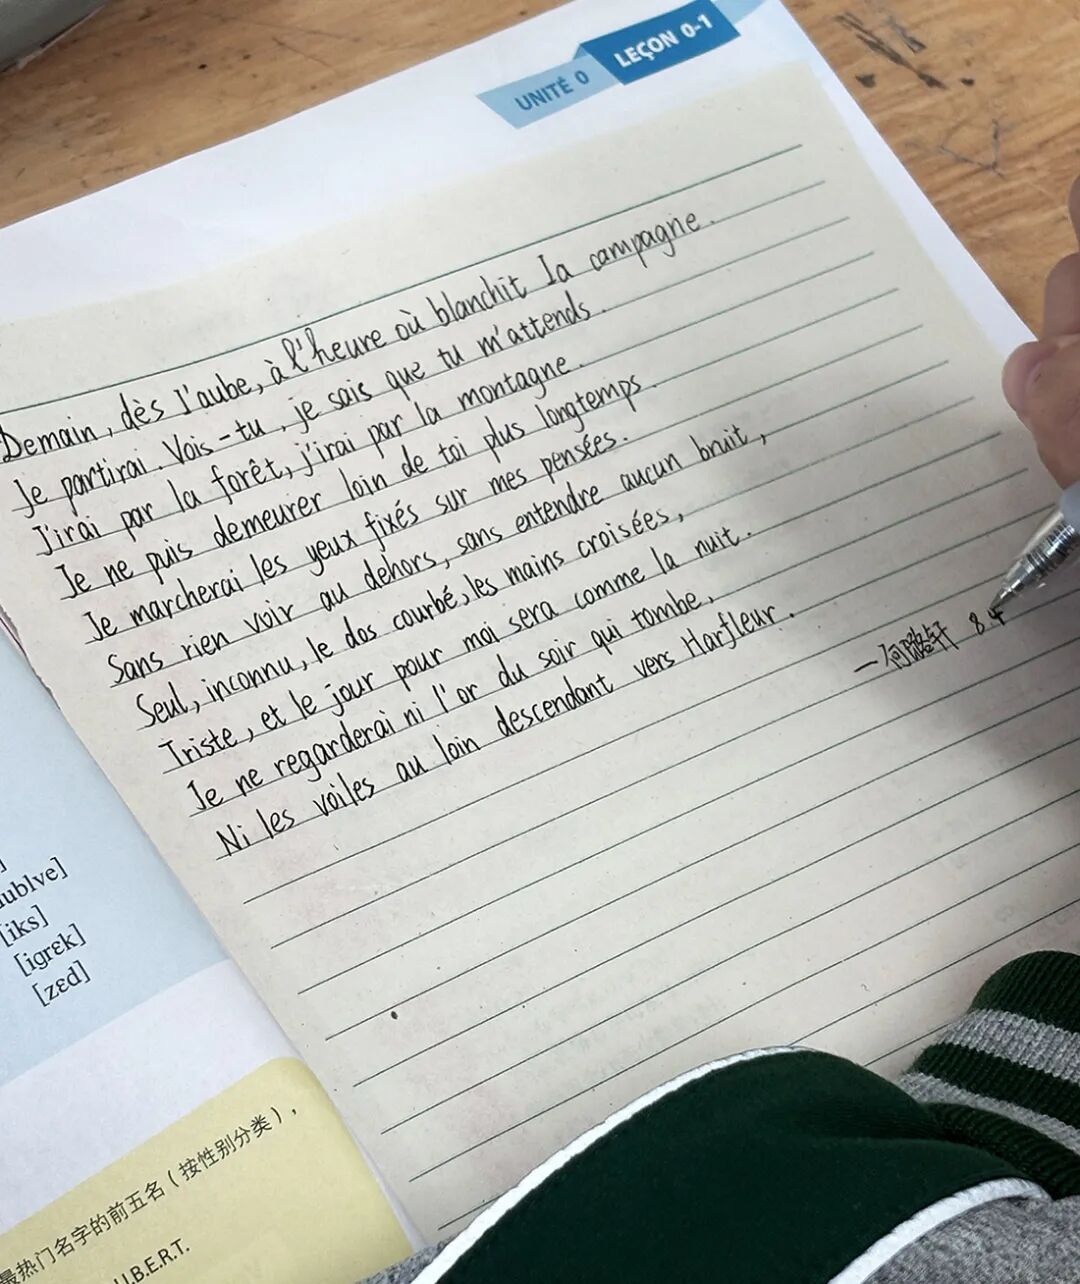 UNITÉ 0 LEÇON 0-1
Demain, dès l'aube, à l'heure où blanchit la campagne.
Je partirai. Vois-tu, je sais que tu m'attends.
J'irai par la forêt, j'irai par la montagne.
Je ne puis demeurer loin de toi plus longtemps.
Je marcherai les yeux fixés sur mes pensées.
Sans rien voir au dehors, sans entendre aucun bruit,
Seul, inconnu, le dos courbé, les mains croisées,
Triste, et le jour pour moi sera comme la nuit.
Je ne regarderai ni l'or du soir qui tombe,
Ni les voiles au loin descendant vers Harfleur.
—何璐轩 8.4
[iks]
[igrɛk]
[zɛd]
最热门名字的前五名（按性别分类），
U.B.E.R.T.